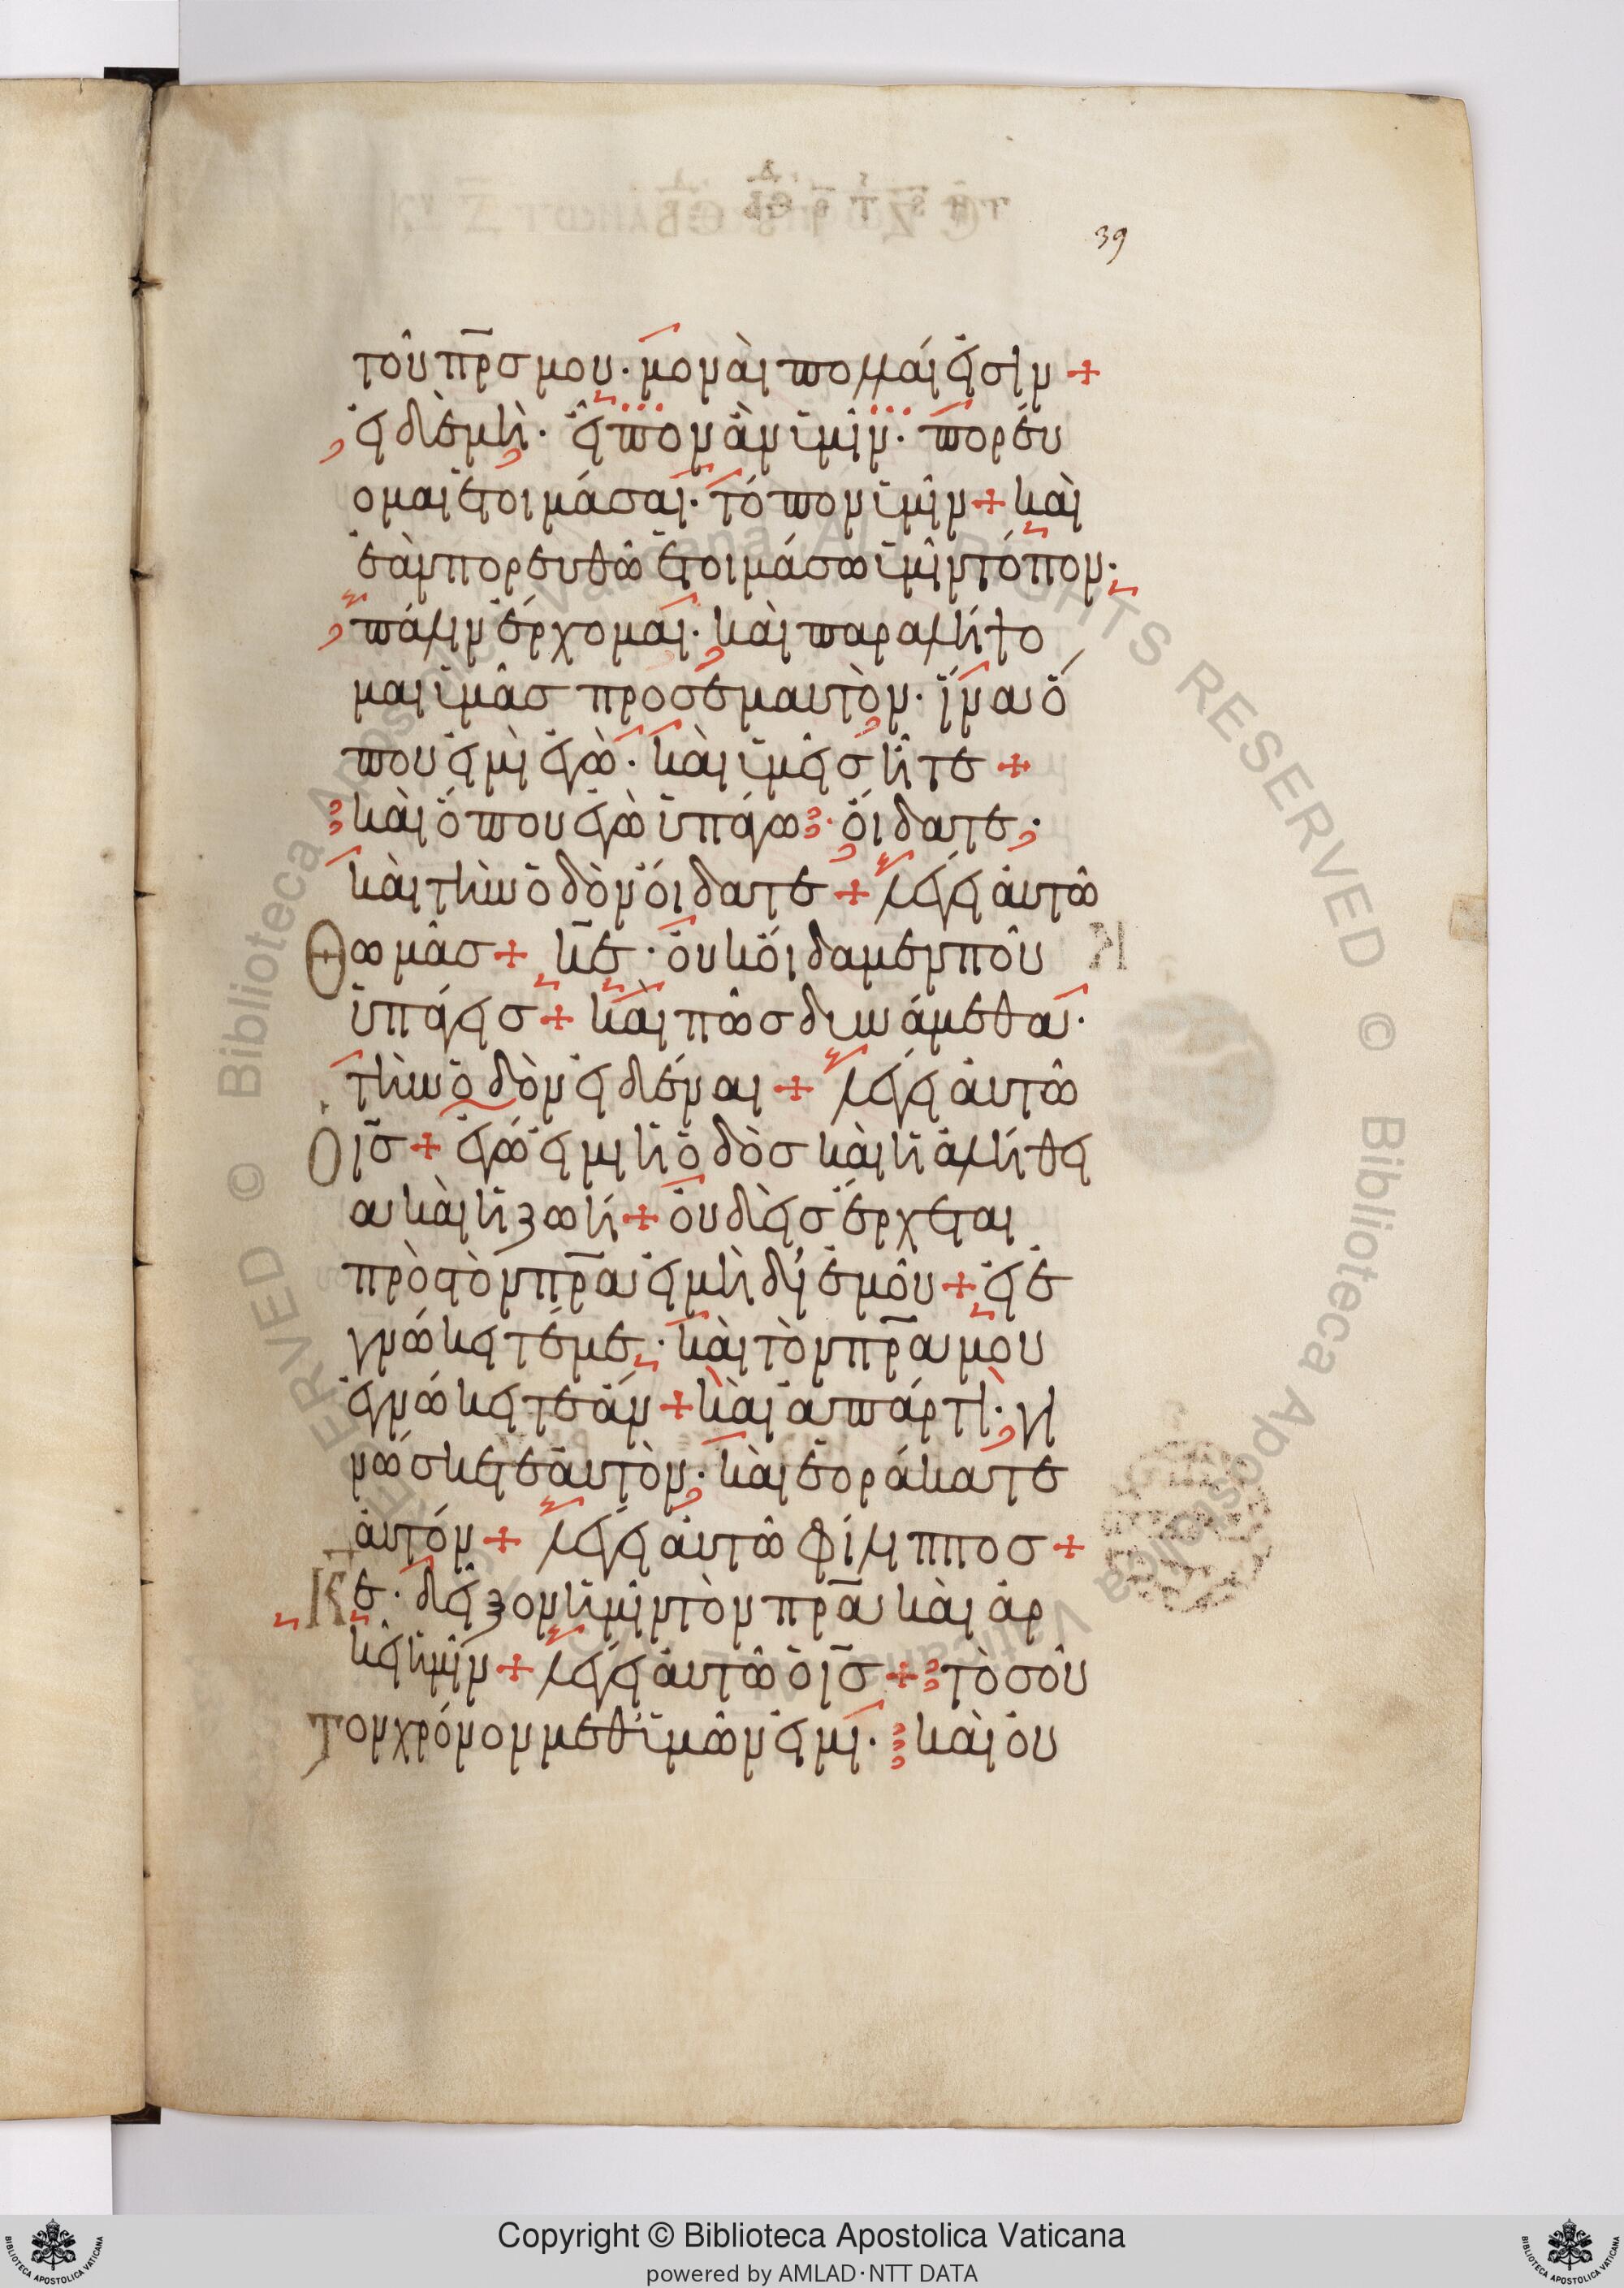 39
τοῦ πρ̅σ μου· μοναὶ πολλαί εἰσιν +
εἰ δὲ μὴ· εἶπον ἂν ὑμῖν· πορεύ
ομαι ἑτοιμάσαι· τόπον ὑμῖν + καὶ
ἐὰν πορευθῶ ἑτοιμάσω ὑμῖν τόπον·
πάλιν ἔρχομαι· καὶ παραλήψο
μαι ὑμᾶσ πρὸσ ἐμαυτὸν· ἵνα ὅ
που εἰμὶ ἐγὼ· καὶ ὑμεῖσ ἦτε +
καὶ ὅπου ἐγὼ ὑπάγω· οἴδατε·
καὶ τὴν ὁδὸν οἴδατε + λέγει αὐτῶ
Θωμᾶσ + κ̅ε· οὐκ οἴδαμεν ποῦ
ὑπάγεισ + καὶ πῶσ δυνάμεθα·
τὴν ὁδὸν εἰδέναι + λέγει αὐτῶ
Ὁ ι̅σ + ἐγώ εἰμι ἡ ὁδὸσ καὶ ἡ ἀλήθει
α καὶ ἡ ζωή + οὐδεὶσ ἔρχεται
πρὸσ τὸν πρ̅α εἰ μὴ δι' ἐμοῦ + εἰ ἐ
γνώκειτέ με· καὶ τὸν πρ̅α μου
ἐγνώκειτε ἄν + καὶ ἀπάρτι· γι
νώσκετε αὐτὸν· καὶ ἑοράκατε
αὐτόν + λέγει αὐτῶ Φίλιπποσ +
Κ̅ε· δεῖξον ἡμῖν τὸν πρ̅α καὶ ἀρ
κεῖ ἡμῖν + λέγει αὐτῶ ὁ ι̅σ + τὸσοῦ
τον χρόνον μεθ' ὑμῶν εἰμι· καὶ οὐ
Copyright © Biblioteca Apostolica Vaticana
powered by AMLAD·NTT DATA